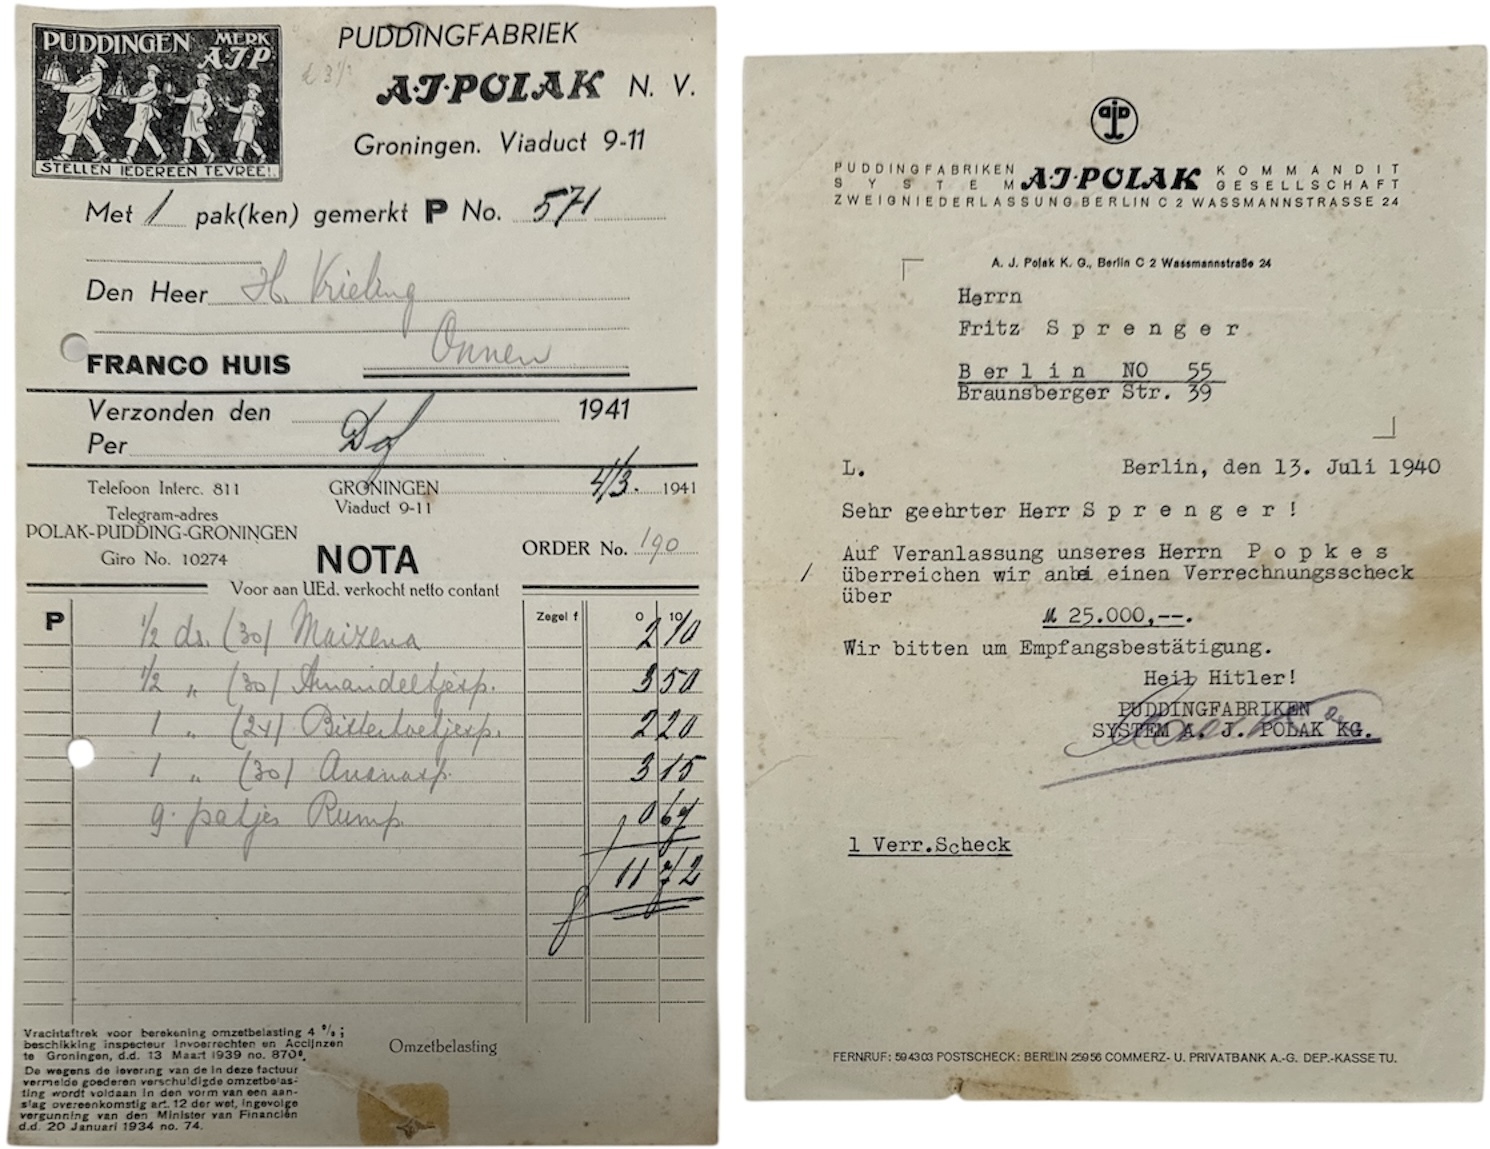 PUDDINGEN MERK
A.J.P.
STELLEN IEDEREEN TEVREE!
PUDDINGFABRIEK
A·J·POLAK N. V.
Groningen. Viaduct 9-11
Met 1 pak(ken) gemerkt P No. 571
Den Heer H. Vrieling
Onnen
FRANCO HUIS
Verzonden den 1941
Per
Telefoon Interc. 811
GRONINGEN 4/3. 1941
Viaduct 9-11
Telegram-adres
POLAK-PUDDING-GRONINGEN
Giro No. 10274
NOTA
ORDER No. 190
Voor aan UEd. verkocht netto contant
P
Zegel f
0 10
1/2 ds. (30) Maizena 2 10
1/2 " (30) Amandeltjesp. 3 50
1 " (24) Bitterkoetjesp. 2 20
1 " (30) Ananasp. 3 15
9 patjes Rump. 0 67
11 72
Vrachtaftrek voor berekening omzetbelasting 4 %;
beschikking inspecteur Invoerrechten en Accijnzen
te Groningen, d.d. 13 Maart 1939 no. 870.
Omzetbelasting
De wegens de levering van de in deze factuur
vermelde goederen verschuldigde omzetbelas-
ting wordt voldaan in den vorm van een aan-
slag overeenkomstig art. 12 der wet, ingevolge
vergunning van den Minister van Financiën
d.d. 20 Januari 1934 no. 74.
ajp
PUDDINGFABRIKEN
SYSTEM A·J·POLAK KOMMANDIT
GESELLSCHAFT
ZWEIGNIEDERLASSUNG BERLIN C 2 WASSMANNSTRASSE 24
A. J. Polak K. G., Berlin C 2 Wassmannstraße 24
Herrn
Fritz S p r e n g e r
B e r l i n NO 55
Braunsberger Str. 39
L. Berlin, den 13. Juli 1940
Sehr geehrter Herr S p r e n g e r !
Auf Veranlassung unseres Herrn P o p k e s
/ überreichen wir anbei einen Verrechnungsscheck
über
M 25.000,--.
Wir bitten um Empfangsbestätigung.
Heil Hitler!
PUDDINGFABRIKEN
SYSTEM A. J. POLAK KG.
1 Verr.Scheck
FERNRUF: 59 43 03 POSTSCHECK: BERLIN 259 56 COMMERZ- U. PRIVATBANK A.-G. DEP.-KASSE TU.